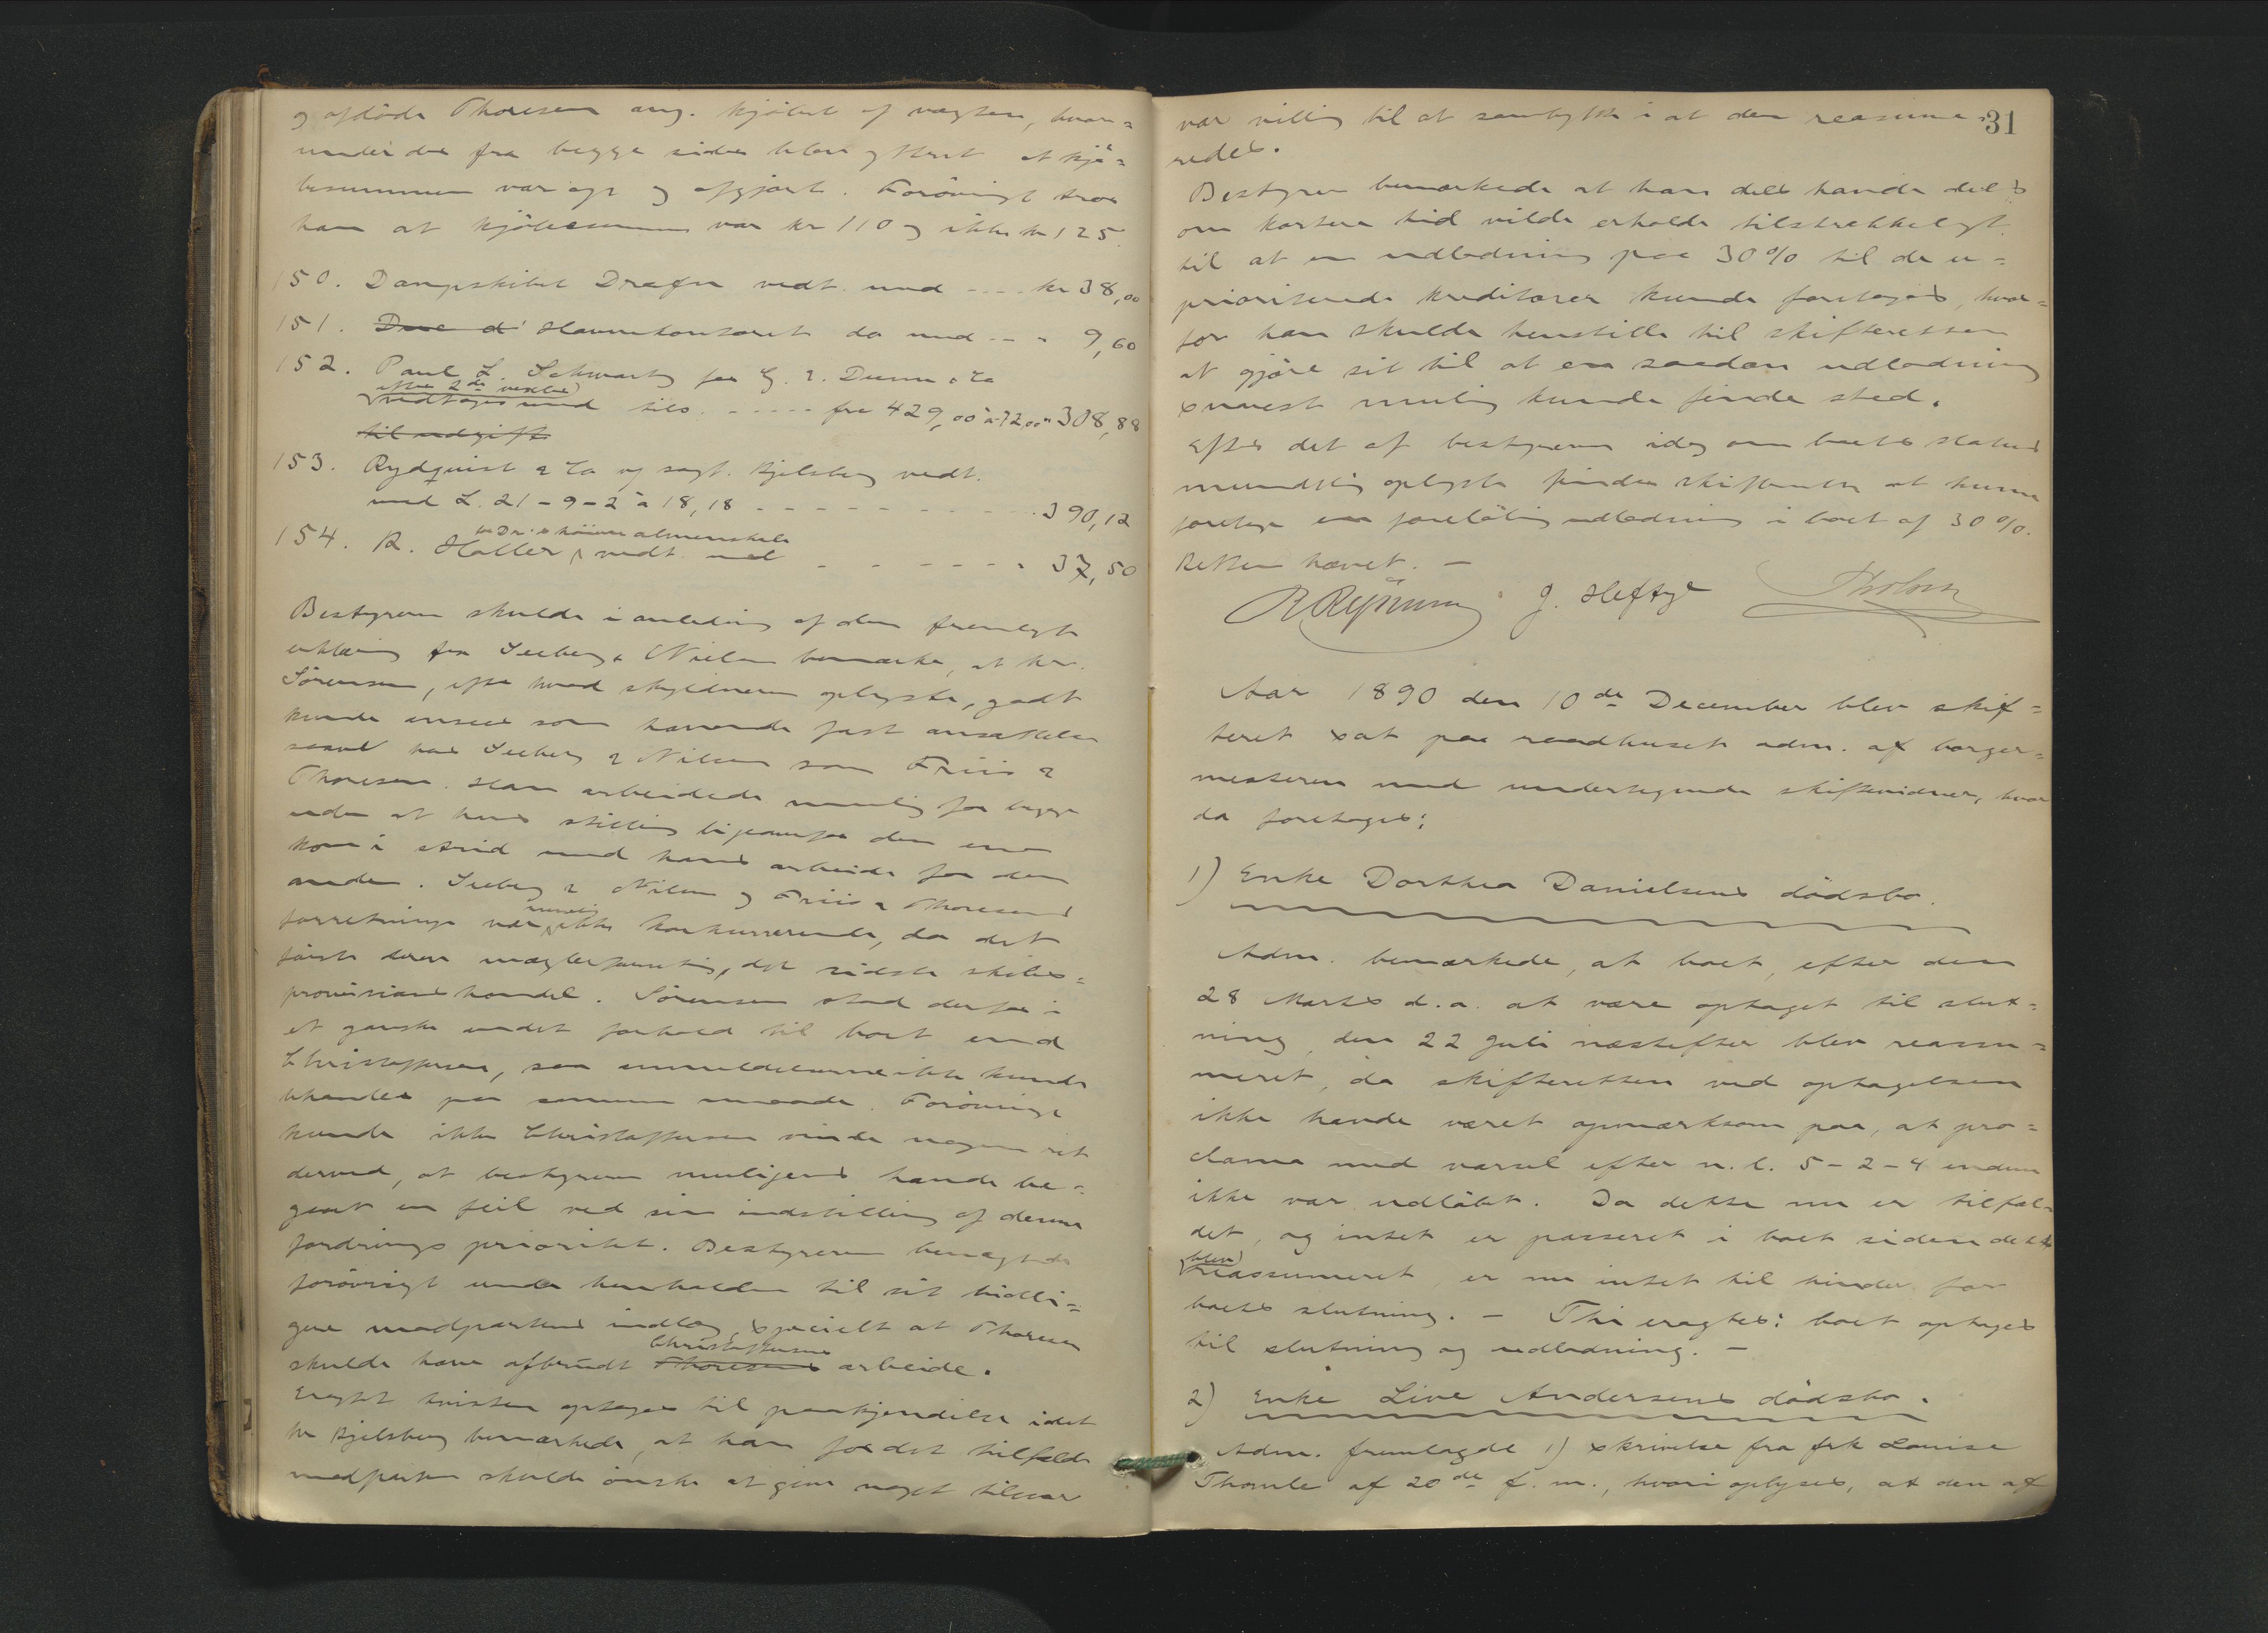 og afdöde Thoresen ang. kjöbet af vægten, hvor=
under der fra begge sider blev ytteret at kjö=
besummen var op og afgjort. Forövrigt tror
han at kjöbesummen var kr 110 og ikke kr 125.
150. Dampskibet Drafn vedt. med - - - kr 38,00
151. Do d Havnekontoret do med - - " 9,60
152. Paul L. Schwartz for G. & Co
efter 2de vexler
vedtages med tils. - - - - - fra 429,00 à 72,00 " 308,88
til udgift
153. Rydquist & Co v/ sagf. Kjelsberg vedt.
med L. 21-9-2 à 18,18 - - - - - - - - - - 390,12
154. R. Haller vedt. med - - - - - - " 37,50
til Dr.s höiere almenskole
Bestyreren skulde i anledning af den fremlagte
erklæring fra Seeberg & Nielsen bemærke, at hr.
Sörensen, efter hvad skyldneren oplyste, godt
kunde ansees som havende fast ansættelse
saavel hos Seeberg & Nilsen som Friis &
Thoresen. Han arbeidede nemlig for begge
uden at hans stilling ligeoverfor den ene
kom i strid med hans arbeide for den
anden. Seeberg & Nilsen og Friis & Thoresens
forretninger var nemlig ikke konkurrerende, da det
förste drev mæglerforretning, det sidste skibs=
provianthandel. Sörensen stod derfor i
et ganske andet forhold til boet end
Christoffersen, saa anmeldelserne ikke kunde
behandles paa samme maade. Forövrigt
kunde ikke Christoffersen vinde nogen ret
derved, at bestyreren muligens havde be=
gaaet en feil ved sin indstilling af denne
fordrings prioritet. Bestyreren benægtede
forövrigt under henholden til sit tidli=
gere modpartens indlæg, specielt at Thoresen
skulde have afbrudt Christoffersens Thoresens arbeide.
Eragtet tvisten optages til paakjendelse idet
hr Kjelsberg bemærkede, at han for det tilfælde
modparten skulde önske at give noget tilsvar
31
var villig til at samtykke i at den reassume=
redes.
Bestyreren bemærkede at han dels havde dels
om kortere tid vilde erholde tilstrækkeligt
til at en udlodning paa 30% til de u=
prioriterede kreditorer kunde foretages, hvor=
for han skulde henstille til skifteretten
at gjöre sit til at en saadan udlodning
snarest mulig kunde finde sted.
Efter det af bestyreren idag om boets status
mundtlig oplyste finder skifteretten at kunne
foretage en foreløbig udlodning i boet af 30%.
Retten hævet. —
J. Heftye
Aar 1890 den 10de December blev skif=
teret sat paa raadhuset adm. af borger=
mesteren med undertegnede skiftevidner, hvor
da foretages:
1) Enke Dorthea Danielsens dödsbo.
Adm. bemærkede, at boet, efter den
28 Marts d.a. at være optaget til slut=
ning, den 22 Juli næstefter blev reassu=
meret, da skifteretten ved optagelsen
ikke havde været opmærksom paa, at pro=
clama med varsel efter n. l. 5-2-4 endnu
ikke var udlöbet. Da dette nu er tilfæl=
det, og intet er passeret i boet siden dette
blev reassumeret, er nu intet til hinder for
boets slutning. — Thi eragtes: boet optages
til slutning og udlodning. —
2) Enke Live Andersens dödsbo.
Adm. fremlagde 1) skrivelse fra frk Louise
Thomle af 20de f. m., hvori oplyses, at den af